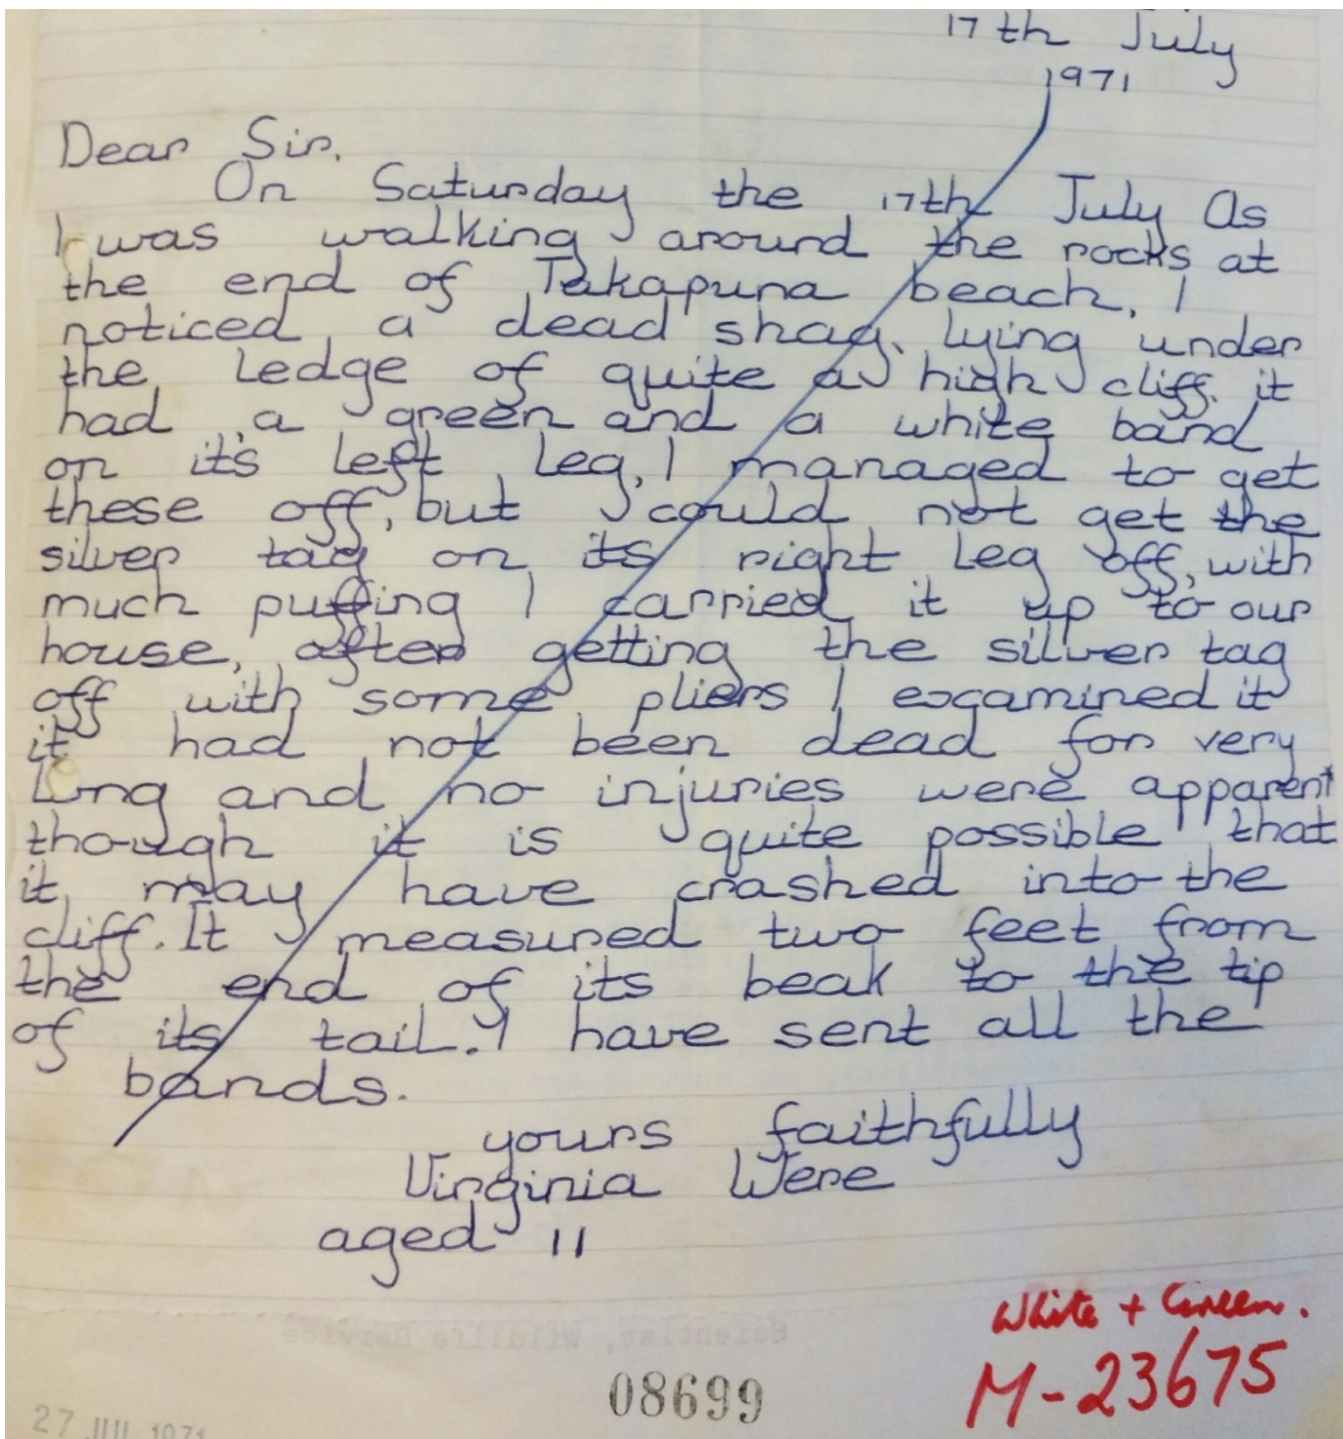 17th July
1971
Dear Sir.
On Saturday the 17th July As
I was walking around the rocks at
the end of Takapuna beach, I
noticed a dead shag, lying under
the ledge of quite a high cliff. it
had a green and a white band
on it's left leg, I managed to get
these off, but I could not get the
silver tag on its right leg off, with
much puffing I carried it up to our
house, after getting the silver tag
off with some pliers I examined it
it had not been dead for very
long and no injuries were apparent
though it is quite possible that
it may have crashed into the
cliff. It measured two feet from
the end of its beak to the tip
of its tail. I have sent all the
bands.
yours faithfully
Virginia Were
aged 11
White + Green.
M-23675
Scientist, Wildlife Service
08699
27 JUL 1971